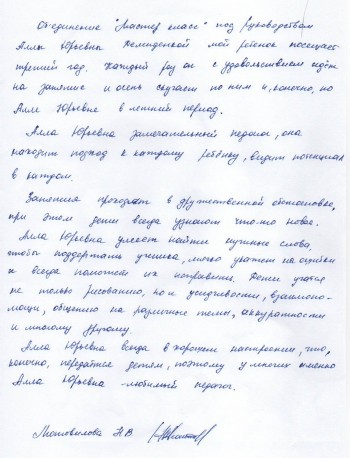 Объединение "Мастер класс" под руководством
Аллы Юрьевны мой ребенок посещает
третий год. Каждый раз он с удовольствием идёт
на занятие и очень скучает по ним и, конечно, по
Алле Юрьевне в летний период.
Алла Юрьевна замечательный педагог, она
находит подход к каждому ребёнку, видит потенциал
в каждом.
Занятия проходят в дружественной обстановке,
при этом дети всегда узнают что-то новое.
Алла Юрьевна умеет найти нужные слова,
чтобы поддержать ученика, мягко укажет на ошибки
и всегда помогает их исправить. Дети учатся
не только рисованию, но и усидчивости, взаимопо-
мощи, общению на различные темы, аккуратности
и многому другому.
Алла Юрьевна всегда в хорошем настроении, что,
конечно, передаётся детям, поэтому у многих именно
Алла Юрьевна - любимый педагог.
Н.В.